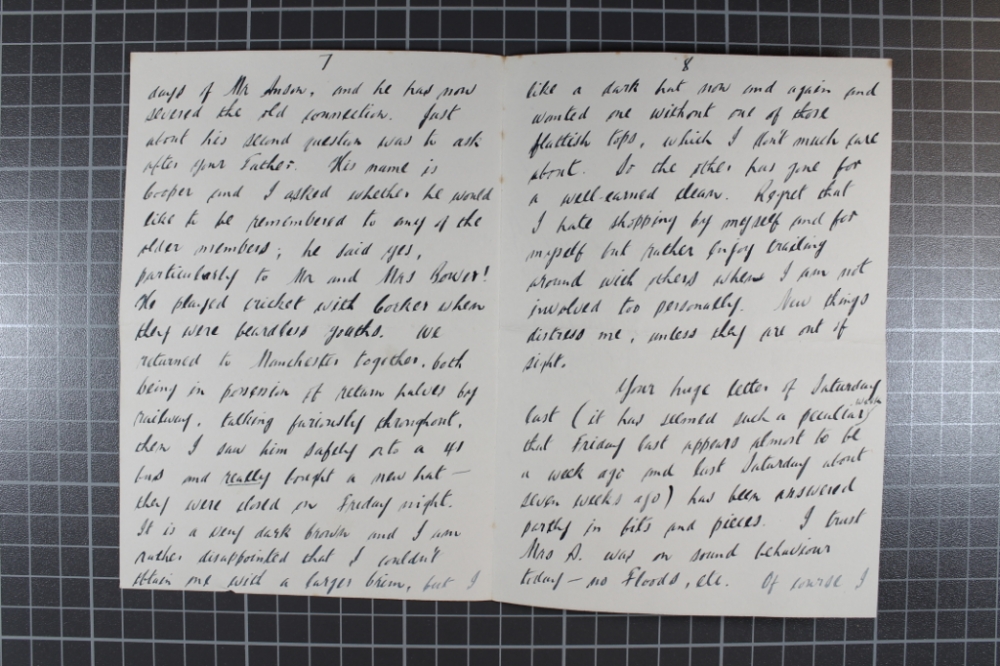 7
days of Mr Anson, and he has now
severed the old connection. Just
about his second question was to ask
after your Father. His name is
Cooper and I asked whether he would
like to be remembered to any of the
older members; he said yes,
particularly to Mr and Mrs Bower!
He played cricket with Cocker when
they were beardless youths. We
returned to Manchester together, both
being in possession of return halves by
railway, talking furiously throughout,
then I saw him safely onto a 41
bus and really bought a new hat —
they were closed on Friday night.
It is a very dark brown and I am
rather disappointed that I couldn't
obtain one with a larger brim, but I
8
like a dark hat now and again and
wanted one without one of those
flattish tops, which I don't much care
about. So the other has gone for
a well-earned clean. Regret that
I hate shopping by myself and for
myself but rather enjoy trailing
around with others when I am not
involved too personally. New things
distress me, unless they are out of
sight.
Your huge letter of Saturday
last (it has seemed such a peculiar week
that Friday last appears almost to be
a week ago and last Saturday about
seven weeks ago) has been answered
partly in bits and pieces. I trust
Mrs D. was on sound behaviour
today — no Floods, etc. Of course I